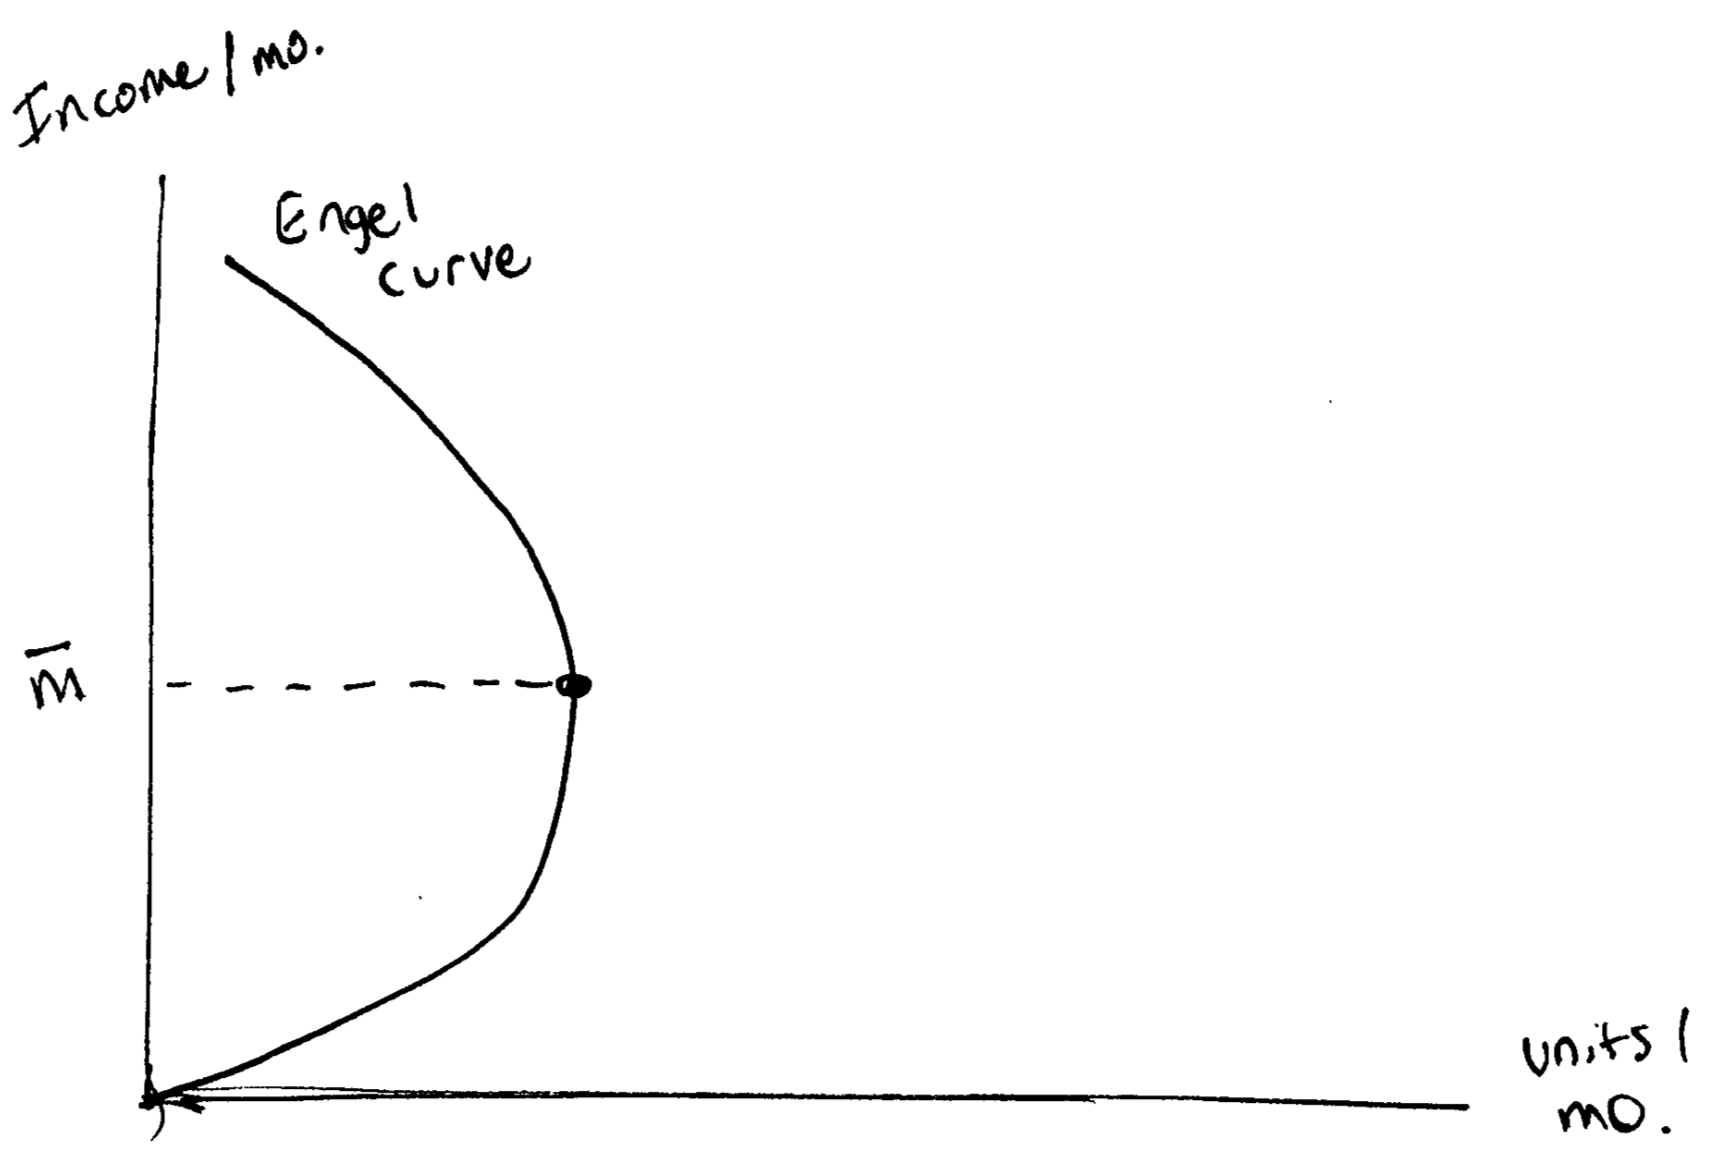 Income / mo.
Engel
curve
m̅
units /
mo.